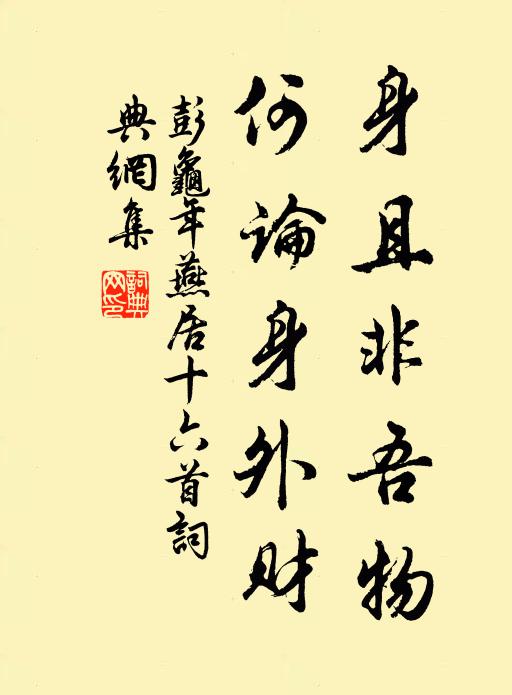 身且非吾物
何論身外财
彭龜年燕居十六首詞
典網集
詞典网印